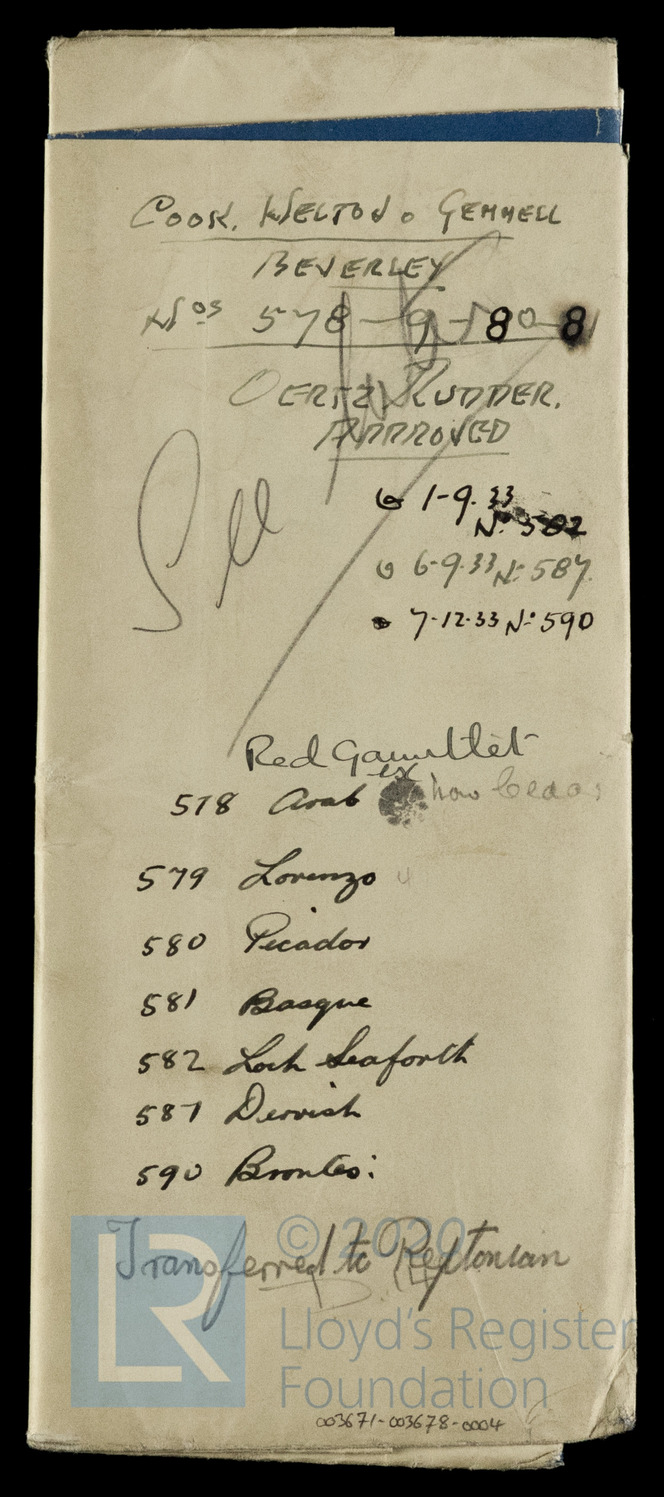 COOK, WELTON & GEMMELL
BEVERLEY
Nos 578-9-80-81
OERTZ RUDDER.
APPROVED
1-9.33
No 582
6-9.33 No 587.
7-12-33 No 590
Red Gauntlet
ex
578 Arab now
579 Lorenzo
580 Picador
581 Basque
582 Loch Seaforth
587 Dervish
590 Brontes:
Transferred to Reptonian
© 2020
LR
Lloyd's Register
Foundation
003671-003678-0004